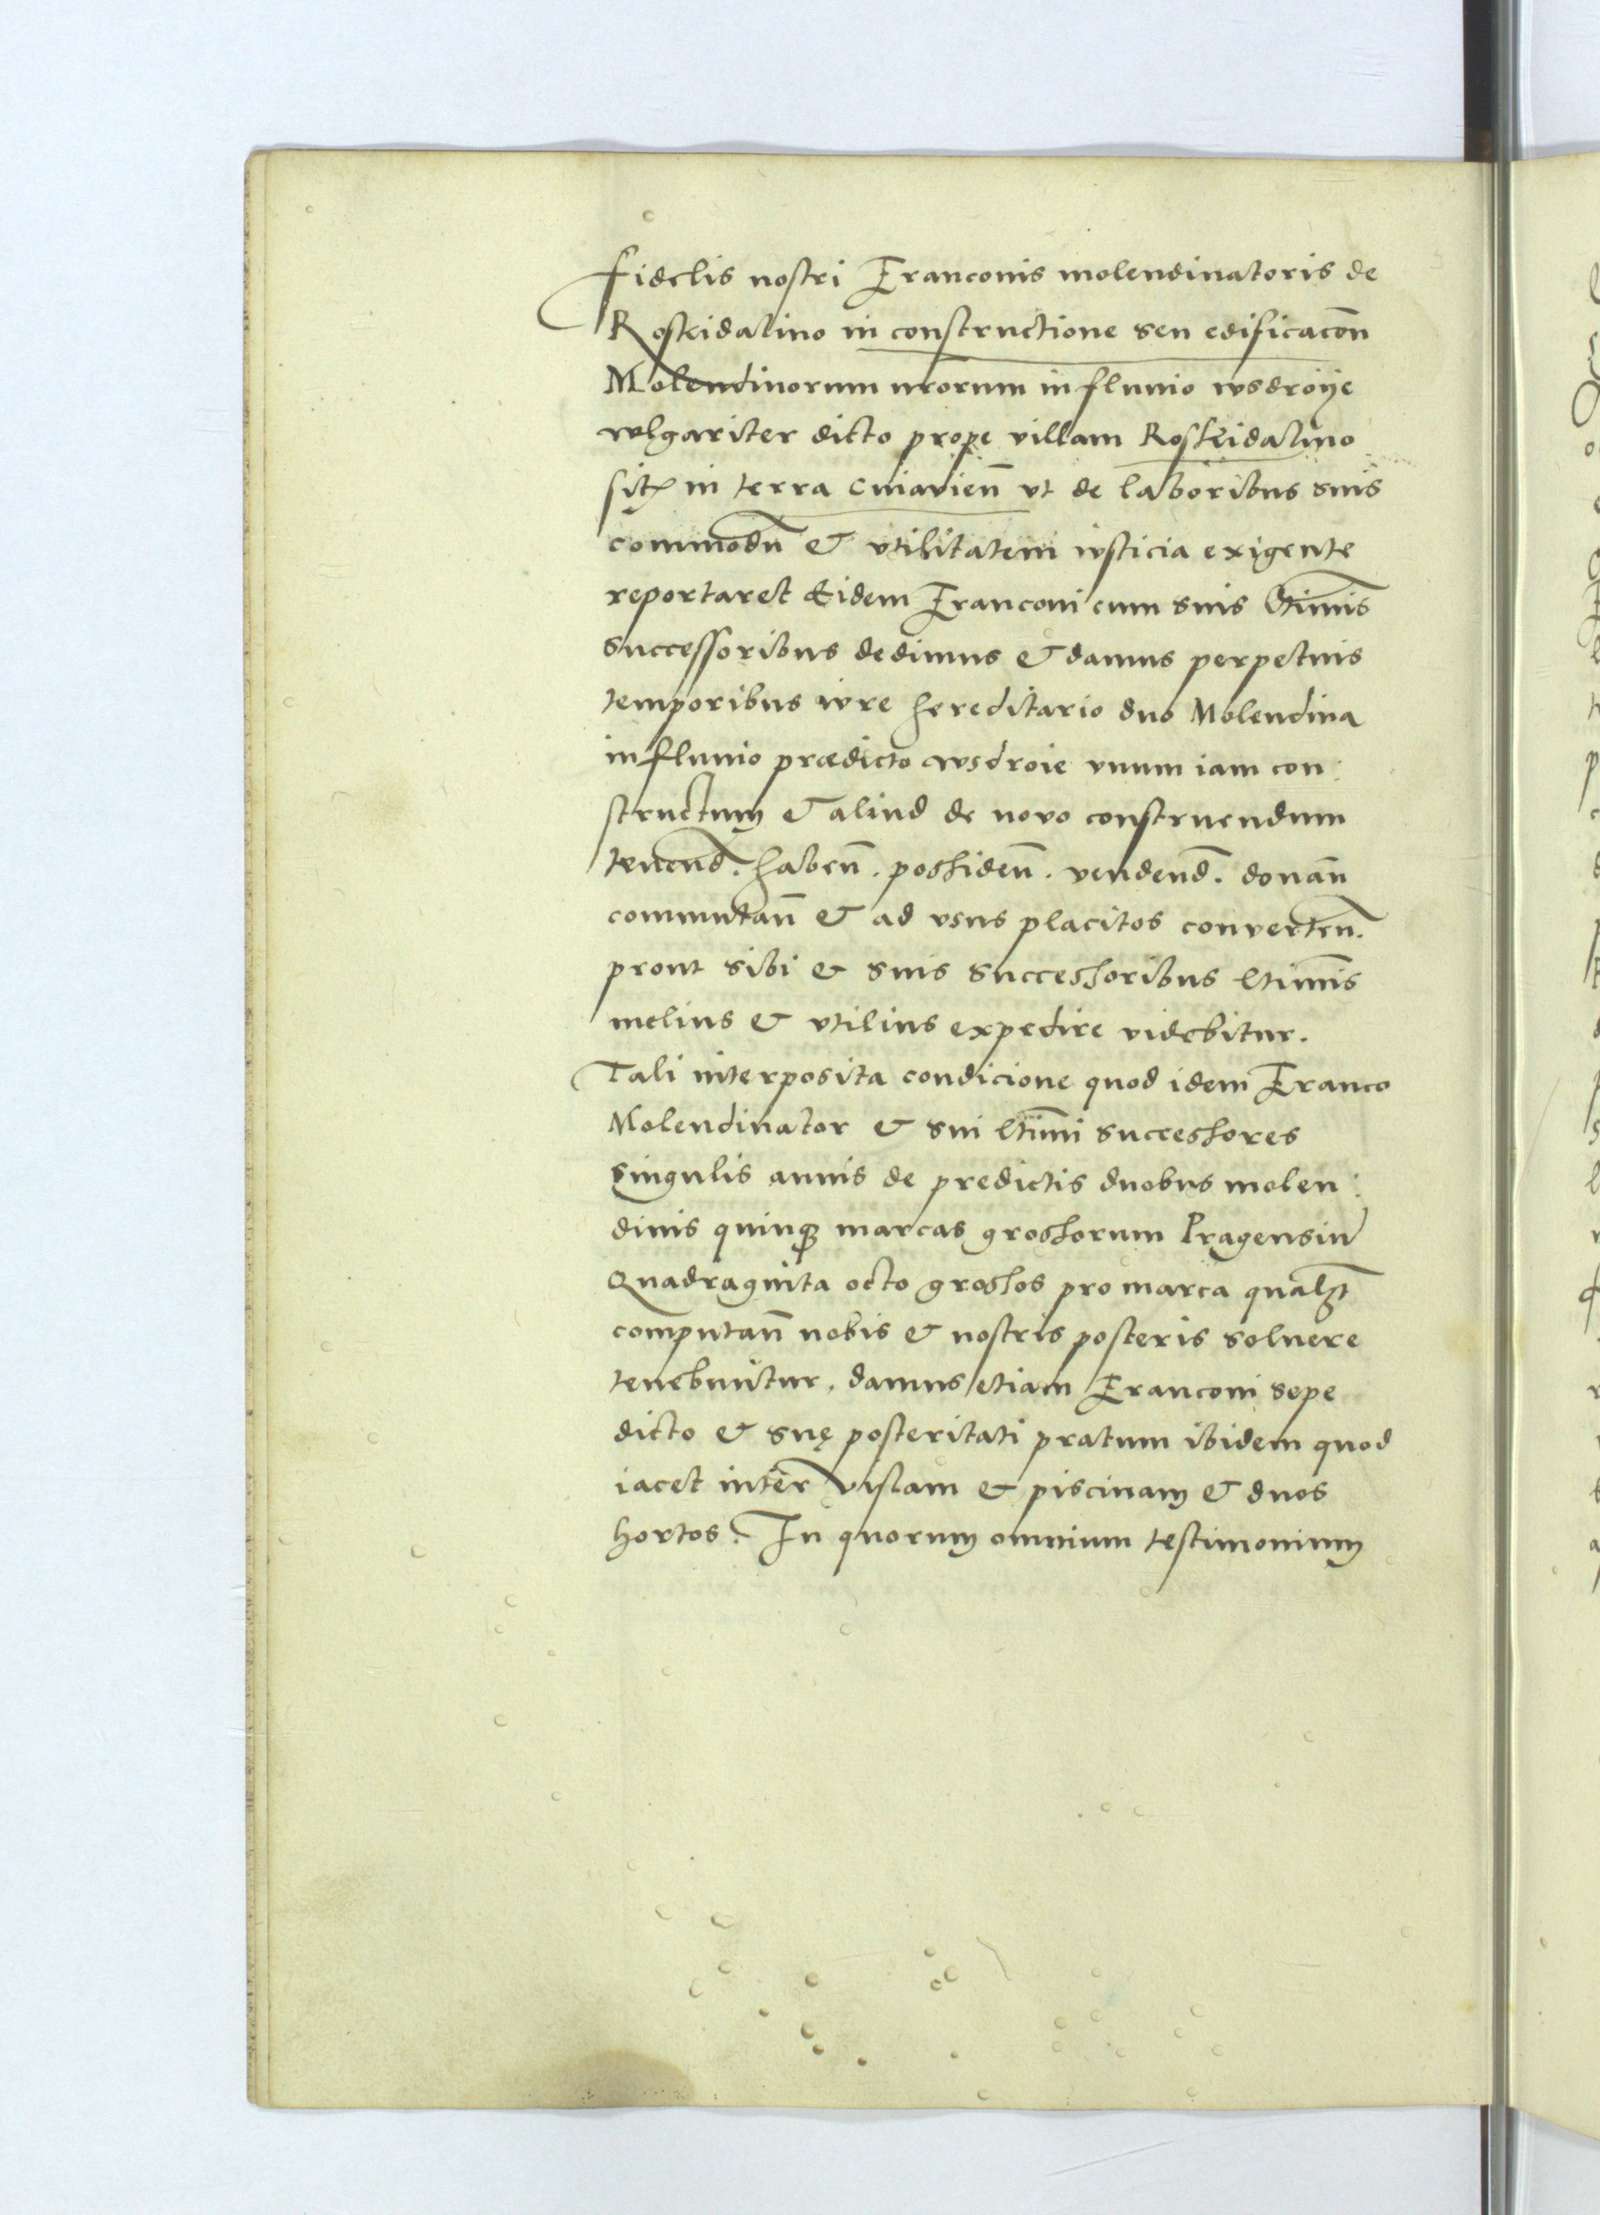 Fidelis nostri Franconis molendinatoris de
Roskidalino in constructione seu edificacōn
Molendinorum nrorum in fluuio wsdroye
wlgariter dicto prope villam Roskidalino
sit in terra Cuiavien̄ vt de laboribus suis
commodū & vtilitatem iusticia exigente
reportaret Eidem Franconi cum suis ltimis
successoribus dedimus & damus perpetuis
temporibus iure hereditario duo Molendina
in fluuio prædicto wsdroie vnum iam con:
structum & aliud de novo construendum
tenend̄. haben̄. possiden̄. vendend̄. donan̄
commutan̄ & ad vsus placitos converten̄.
prout sibi & suis successoribus ltimis
melius & vtilius expedire videbitur.
Tali interposita condicione quod idem Franco
Molendinator & sui ltimi successores
singulis annis de predictis duobus molen:
dinis quinqꝫ marcas grossorum Pragensiū
Quadraginta octo grossos pro marca qualꝫt
computan̄ nobis & nostris posteris soluere
tenebuntur, damus etiam Franconi sepe
dicto & suę posteritati pratum ibidem quod
iacet inter vislam & piscinam & duos
hortos. In quorum omnium testimonium